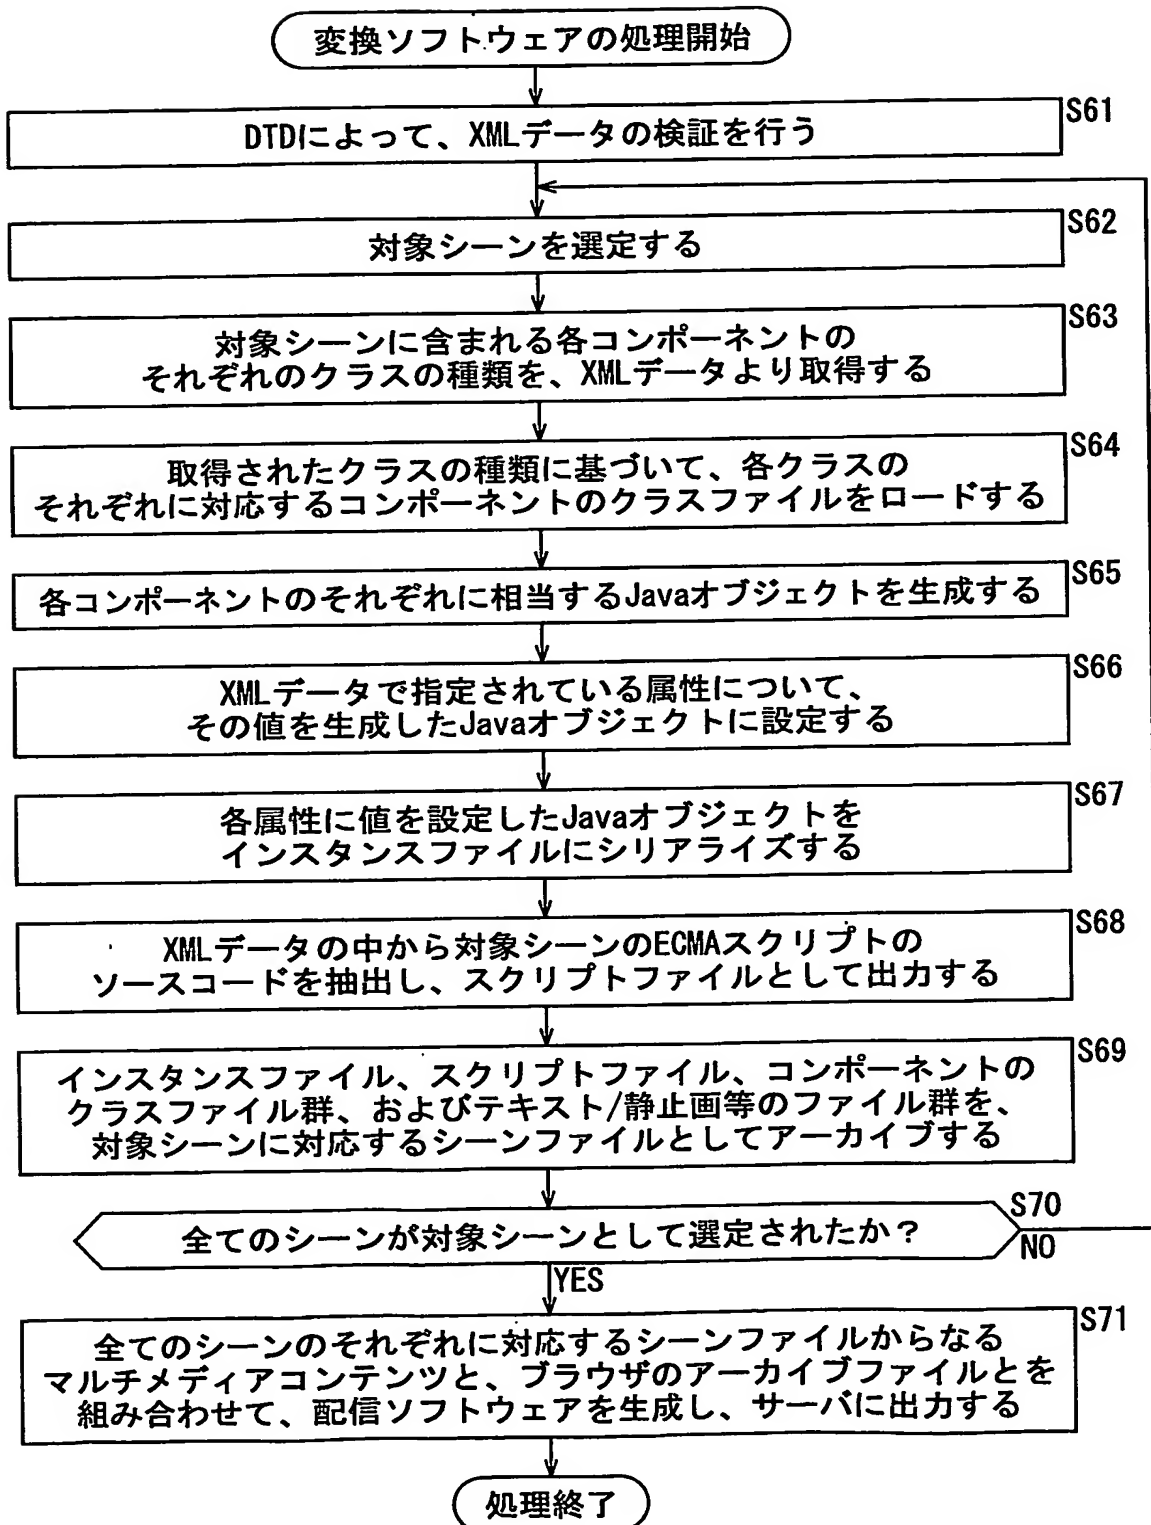 変換ソフトウェアの処理開始
S61
DTDによって、XMLデータの検証を行う
S62
対象シーンを選定する
S63
対象シーンに含まれる各コンポーネントの
それぞれのクラスの種類を、XMLデータより取得する
S64
取得されたクラスの種類に基づいて、各クラスの
それぞれに対応するコンポーネントのクラスファイルをロードする
S65
各コンポーネントのそれぞれに相当するJavaオブジェクトを生成する
S66
XMLデータで指定されている属性について、
その値を生成したJavaオブジェクトに設定する
S67
各属性に値を設定したJavaオブジェクトを
インスタンスファイルにシリアライズする
S68
XMLデータの中から対象シーンのECMAスクリプトの
ソースコードを抽出し、スクリプトファイルとして出力する
S69
インスタンスファイル、スクリプトファイル、コンポーネントの
クラスファイル群、およびテキスト/静止画等のファイル群を、
対象シーンに対応するシーンファイルとしてアーカイブする
S70
全てのシーンが対象シーンとして選定されたか？
NO
YES
S71
全てのシーンのそれぞれに対応するシーンファイルからなる
マルチメディアコンテンツと、ブラウザのアーカイブファイルとを
組み合わせて、配信ソフトウェアを生成し、サーバに出力する
処理終了